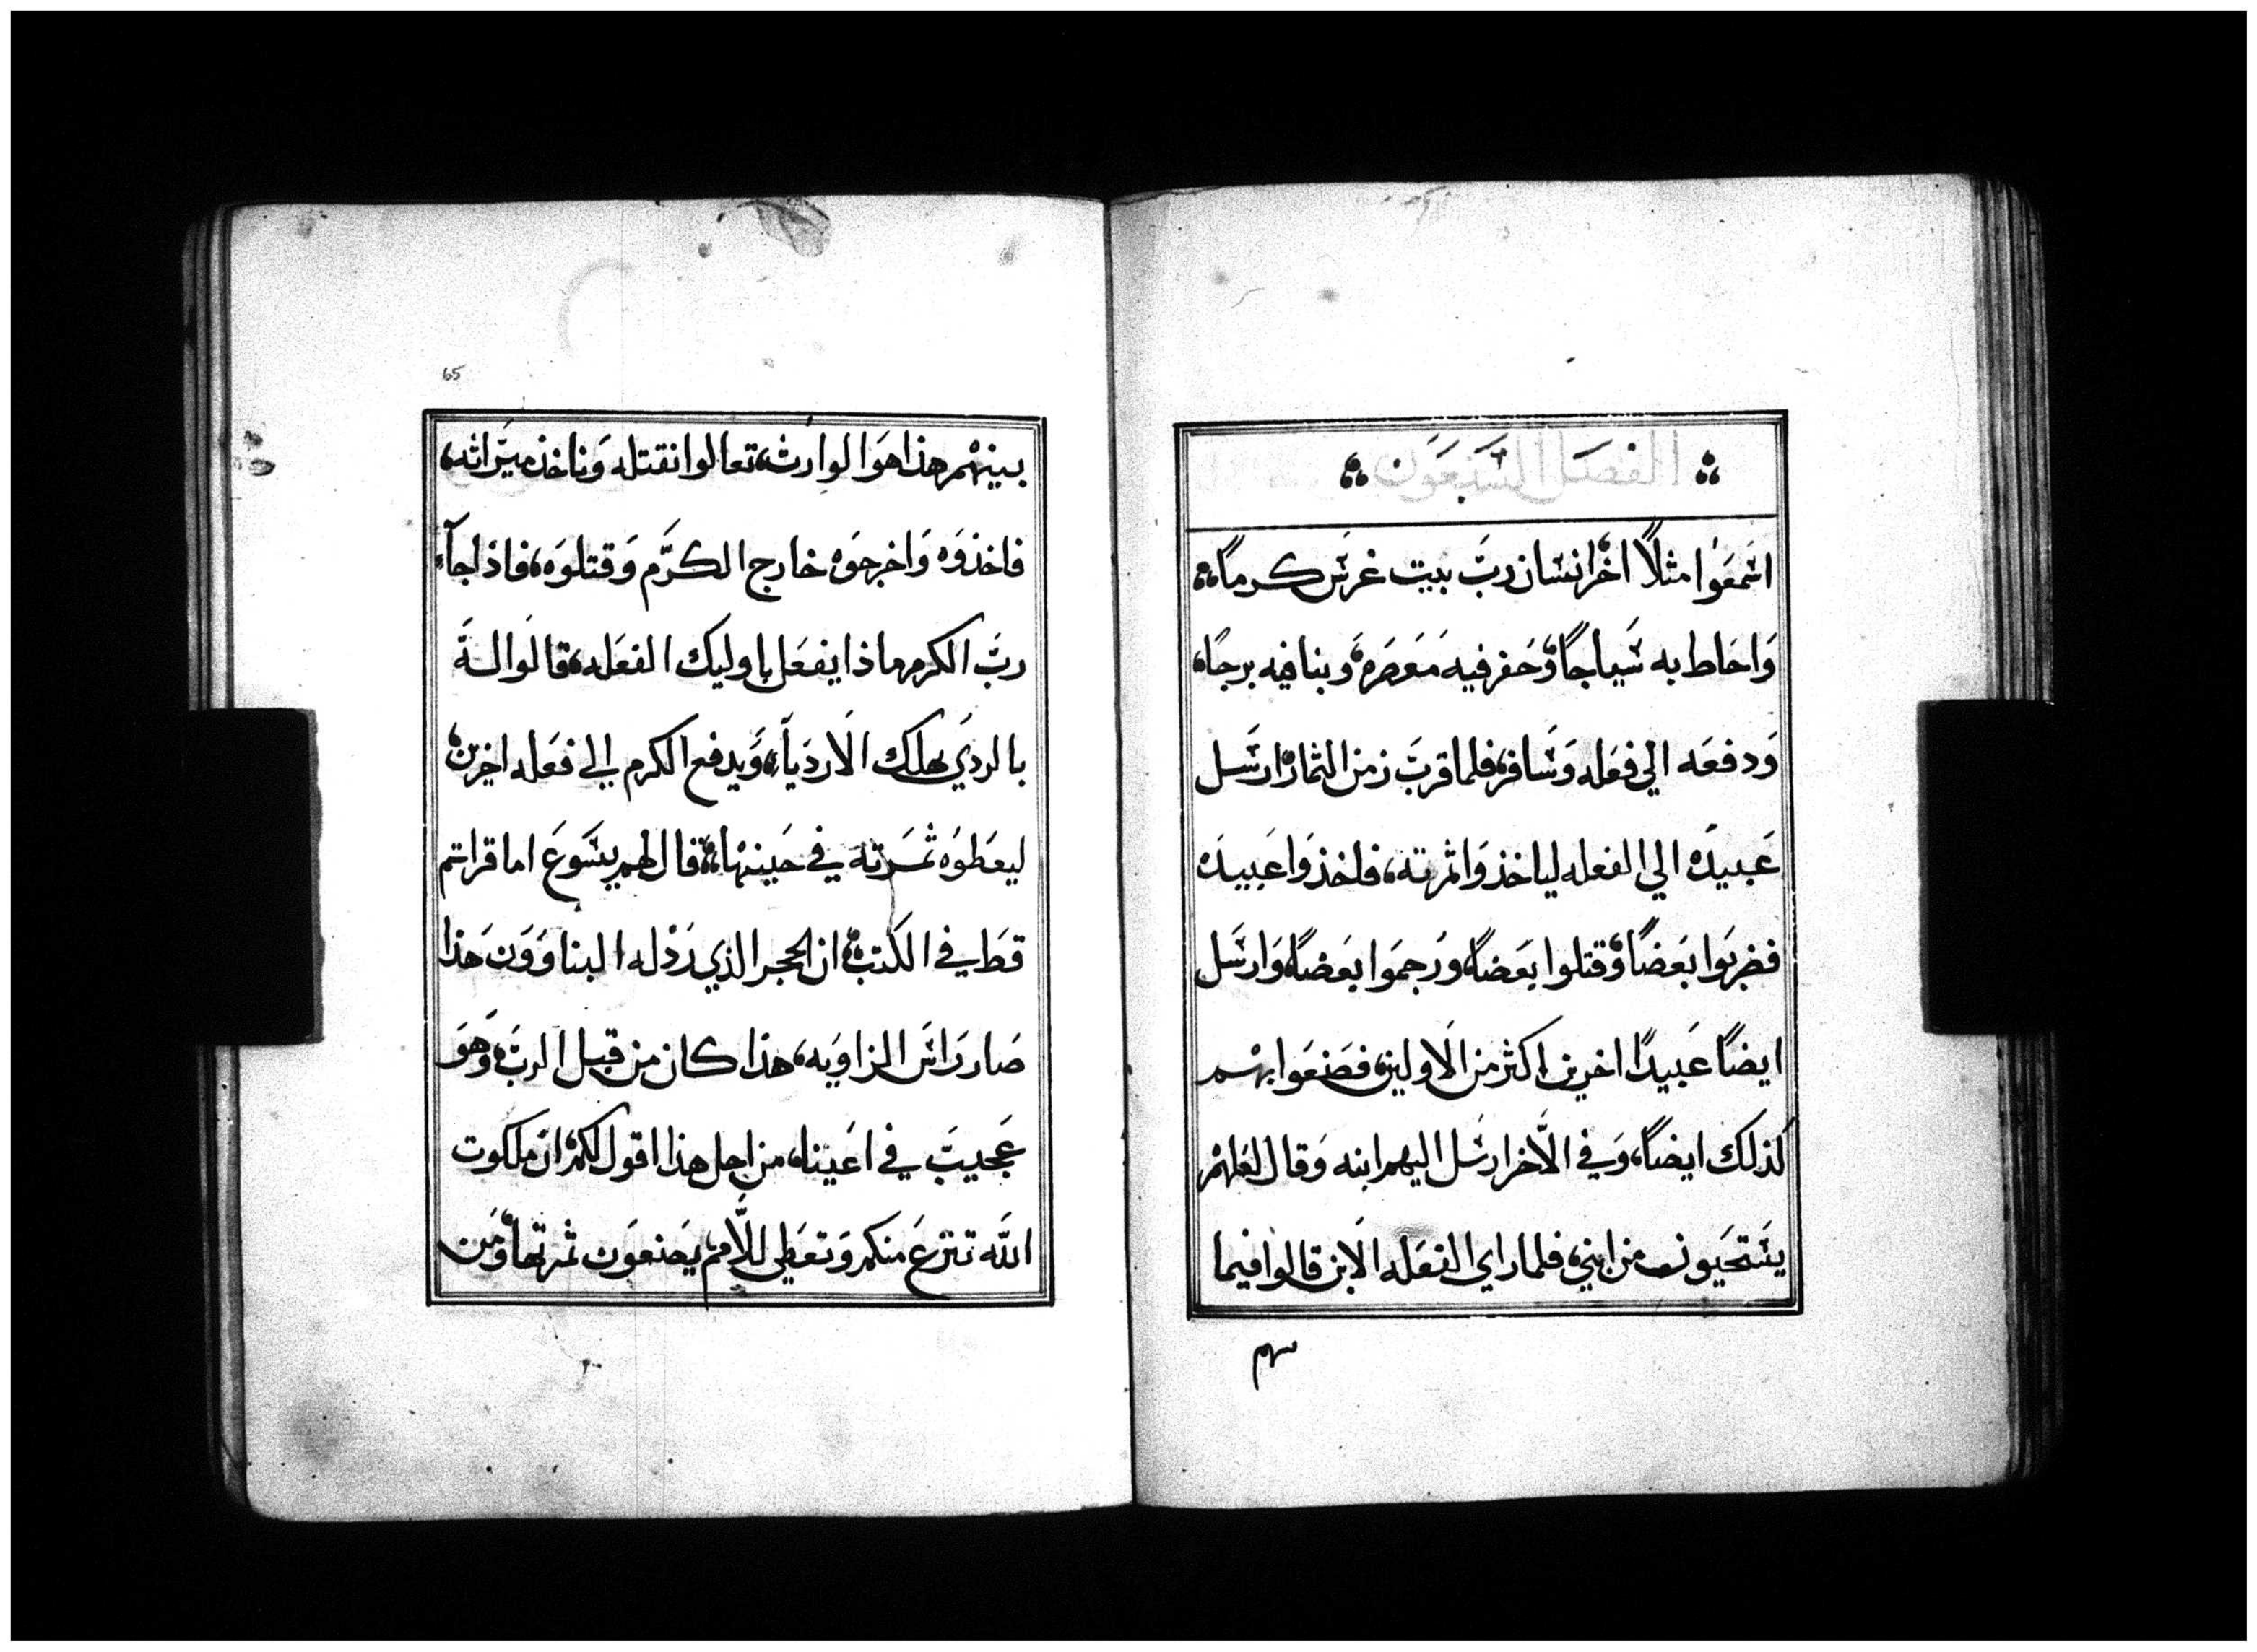 الفصل السبعون
اسمعوا مثلًا اخر انسان ربّ بيت غرس كرمًا
واحاط به سياجًا وحفر فيه معصره وبنا فيه برجًا،
ودفعه الي فعله وسافر، فلما قرب زمن الثمار ارسل
عبيده الي الفعله لياخذوا ثمرته، فاخذوا عبيده
فضربوا بعضًا وقتلوا بعضًا ورجموا بعضًا وارسل
ايضًا عبيدًا اخرين اكثر من الاولين، فصنعوا بهم
كذلك ايضًا، وفي الاخر ارسل اليهم ابنه وقال لعلهم
يستحيون من ابني، فلما راي الفعله الابن قالوا فيما
65
بينهم هذا هو الوارث، تعالوا نقتله وناخذ ميراثه،
فاخذوه واخرجوه خارج الكرم وقتلوه، فاذا جآء
ربّ الكرم ماذا يفعل باوليك الفعله، قالوا له
بالردي يهلك الاردياء، ويدفع الكرم الي فعله اخرين
ليعطوه ثمرته في حينها، قال لهم يسوع اما قراتم
قط في الكتب، ان الحجر الذي رذله البناوون هذا
صار راس الزاويه، هذا كان من قبل الرب، وهو
عجيب في اعيننا، من اجل هذا اقول لكم، ان ملكوت
الله تنزع منكم وتعطي للامم يصنعون ثمرتها، ومن